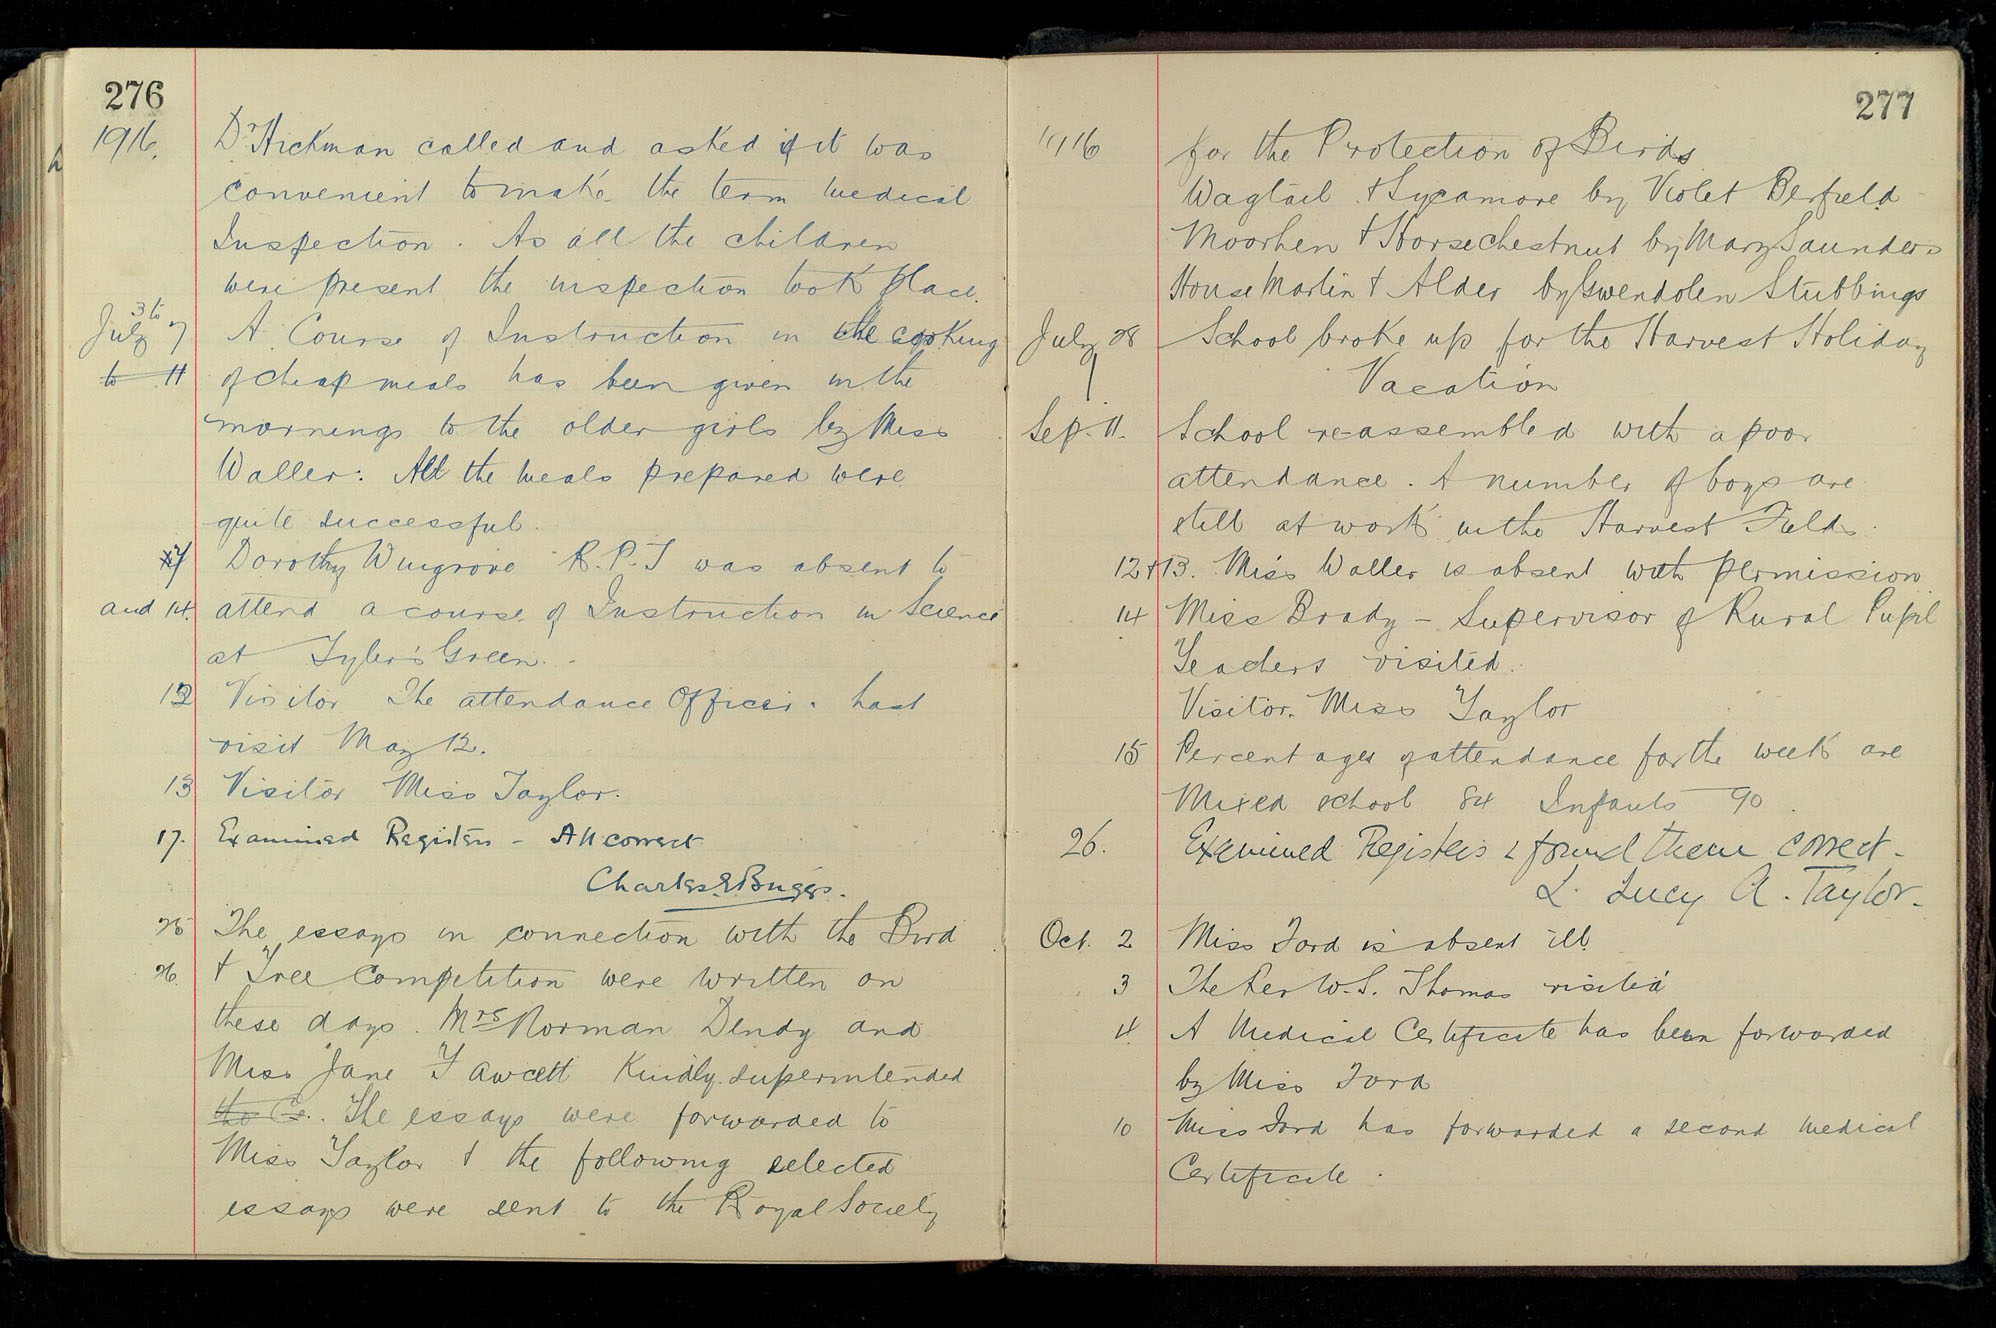 276
1916.
Dr Hickman called and asked if it was
convenient to make the term medical
Inspection. As all the children
were present the inspection took place.
July 3 to 7 A Course of Instruction in the cooking
to 11 of cheap meals has been given in the
mornings to the older girls by Miss
Waller: All the meals prepared were
quite successful.
Dorothy Wingrove R.P.T was absent to
and 14. attend a course of Instruction in Science
at Tyler's Green.
12 Visitor The attendance Officer. last
visit May 12.
13 Visitor Miss Taylor.
17. Examined Registers - All correct
Charles E Buggs.
25 The essays in connection with the Bird
26. + Tree Competition were written on
these days. Mrs Norman Dendy and
Miss Jane Fawcett Kindly superintended
the Co. The essays were forwarded to
Miss Taylor + the following selected
essays were sent to the Royal Society
277
1916
for the Protection of Birds
Wagtail + Sycamore by Violet Berfield
Moorhen + Horsechestnut by Mary Saunders
House Martin + Alder by Gwendolen Stubbings
July 28 School broke up for the Harvest Holiday
Vacation
Sep. 11. School re-assembled with a poor
attendance. A number of boys are
still at work in the Harvest Fields.
12 + 13. Miss Waller is absent with permission
14 Miss Brady - Supervisor of Rural Pupil
Teachers visited.
Visitor. Miss Taylor
15 Percentages of attendance for the week are
Mixed school 84 Infants 90.
26. Examined Registers & found them correct -
L. Lucy A. Taylor.
Oct. 2 Miss Ford is absent ill.
3 The Rev W. S. Thomas visited
4. A Medical Certificate has been forwarded
by Miss Ford
10 Miss Ford has forwarded a second medical
Certificate.